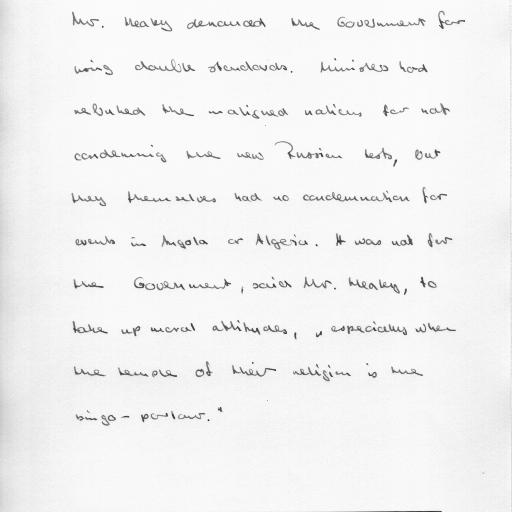 Mr. Healey denounced the Government for
using double standards. Ministers had
rebuked the unaligned nations for not
condemning the new Russian tests, but
they themselves had no condemnation for
events in Angola or Algeria. It was not for
the Government, said Mr. Healey, to
take up moral attitudes, "especially when
the temple of their religion is the
bingo-parlour."